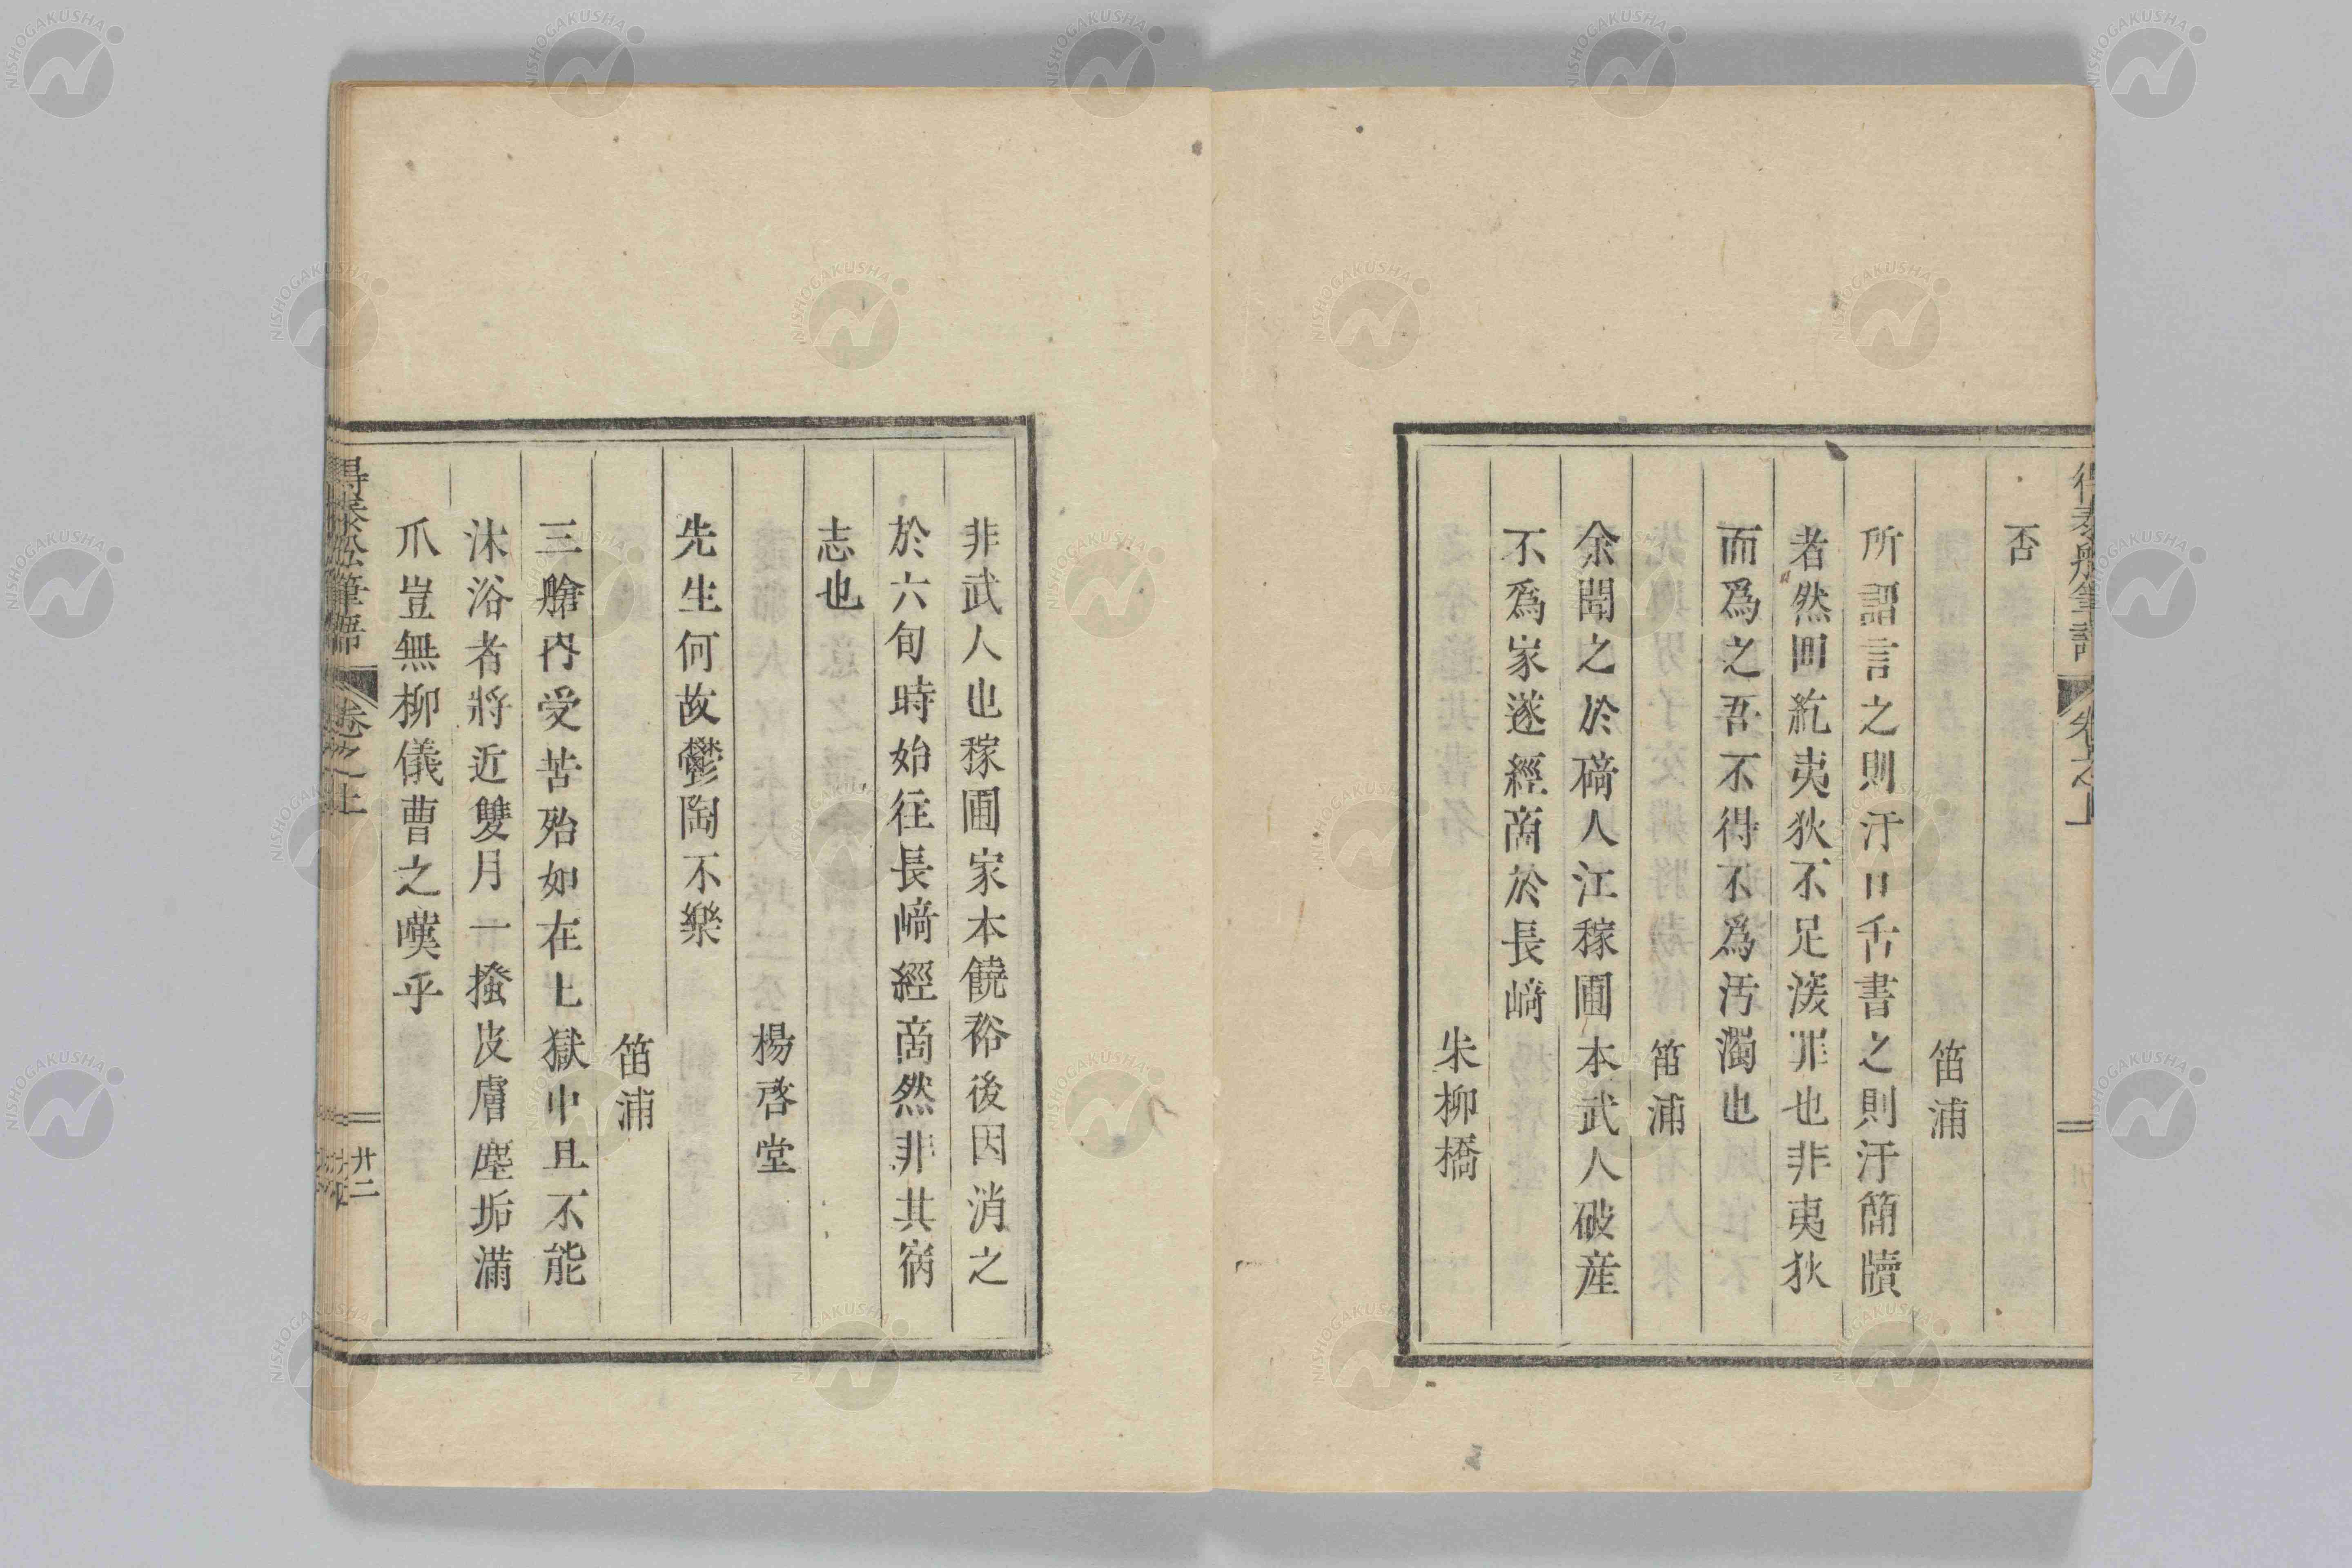 否
笛浦
所謂言之則汙口舌書之則汙簡牘
者然回紇夷狄不足深罪也非夷狄
而爲之吾不得不爲汚濁也
笛浦
余聞之於碕人江稼圃本武人破産
不爲家遂經商於長﨑
朱柳橋
非武人也稼圃家本饒裕後因消之
於六旬時始往長﨑經商然非其宿
志也
楊啓堂
先生何故鬱陶不樂
笛浦
三艙内受苦殆如在土獄中且不能
沐浴者將近雙月一搔皮膚塵垢滿
爪豈無柳儀曹之嘆乎
得泰船筆語 卷之上
廿二
NISHOGAKUSHA